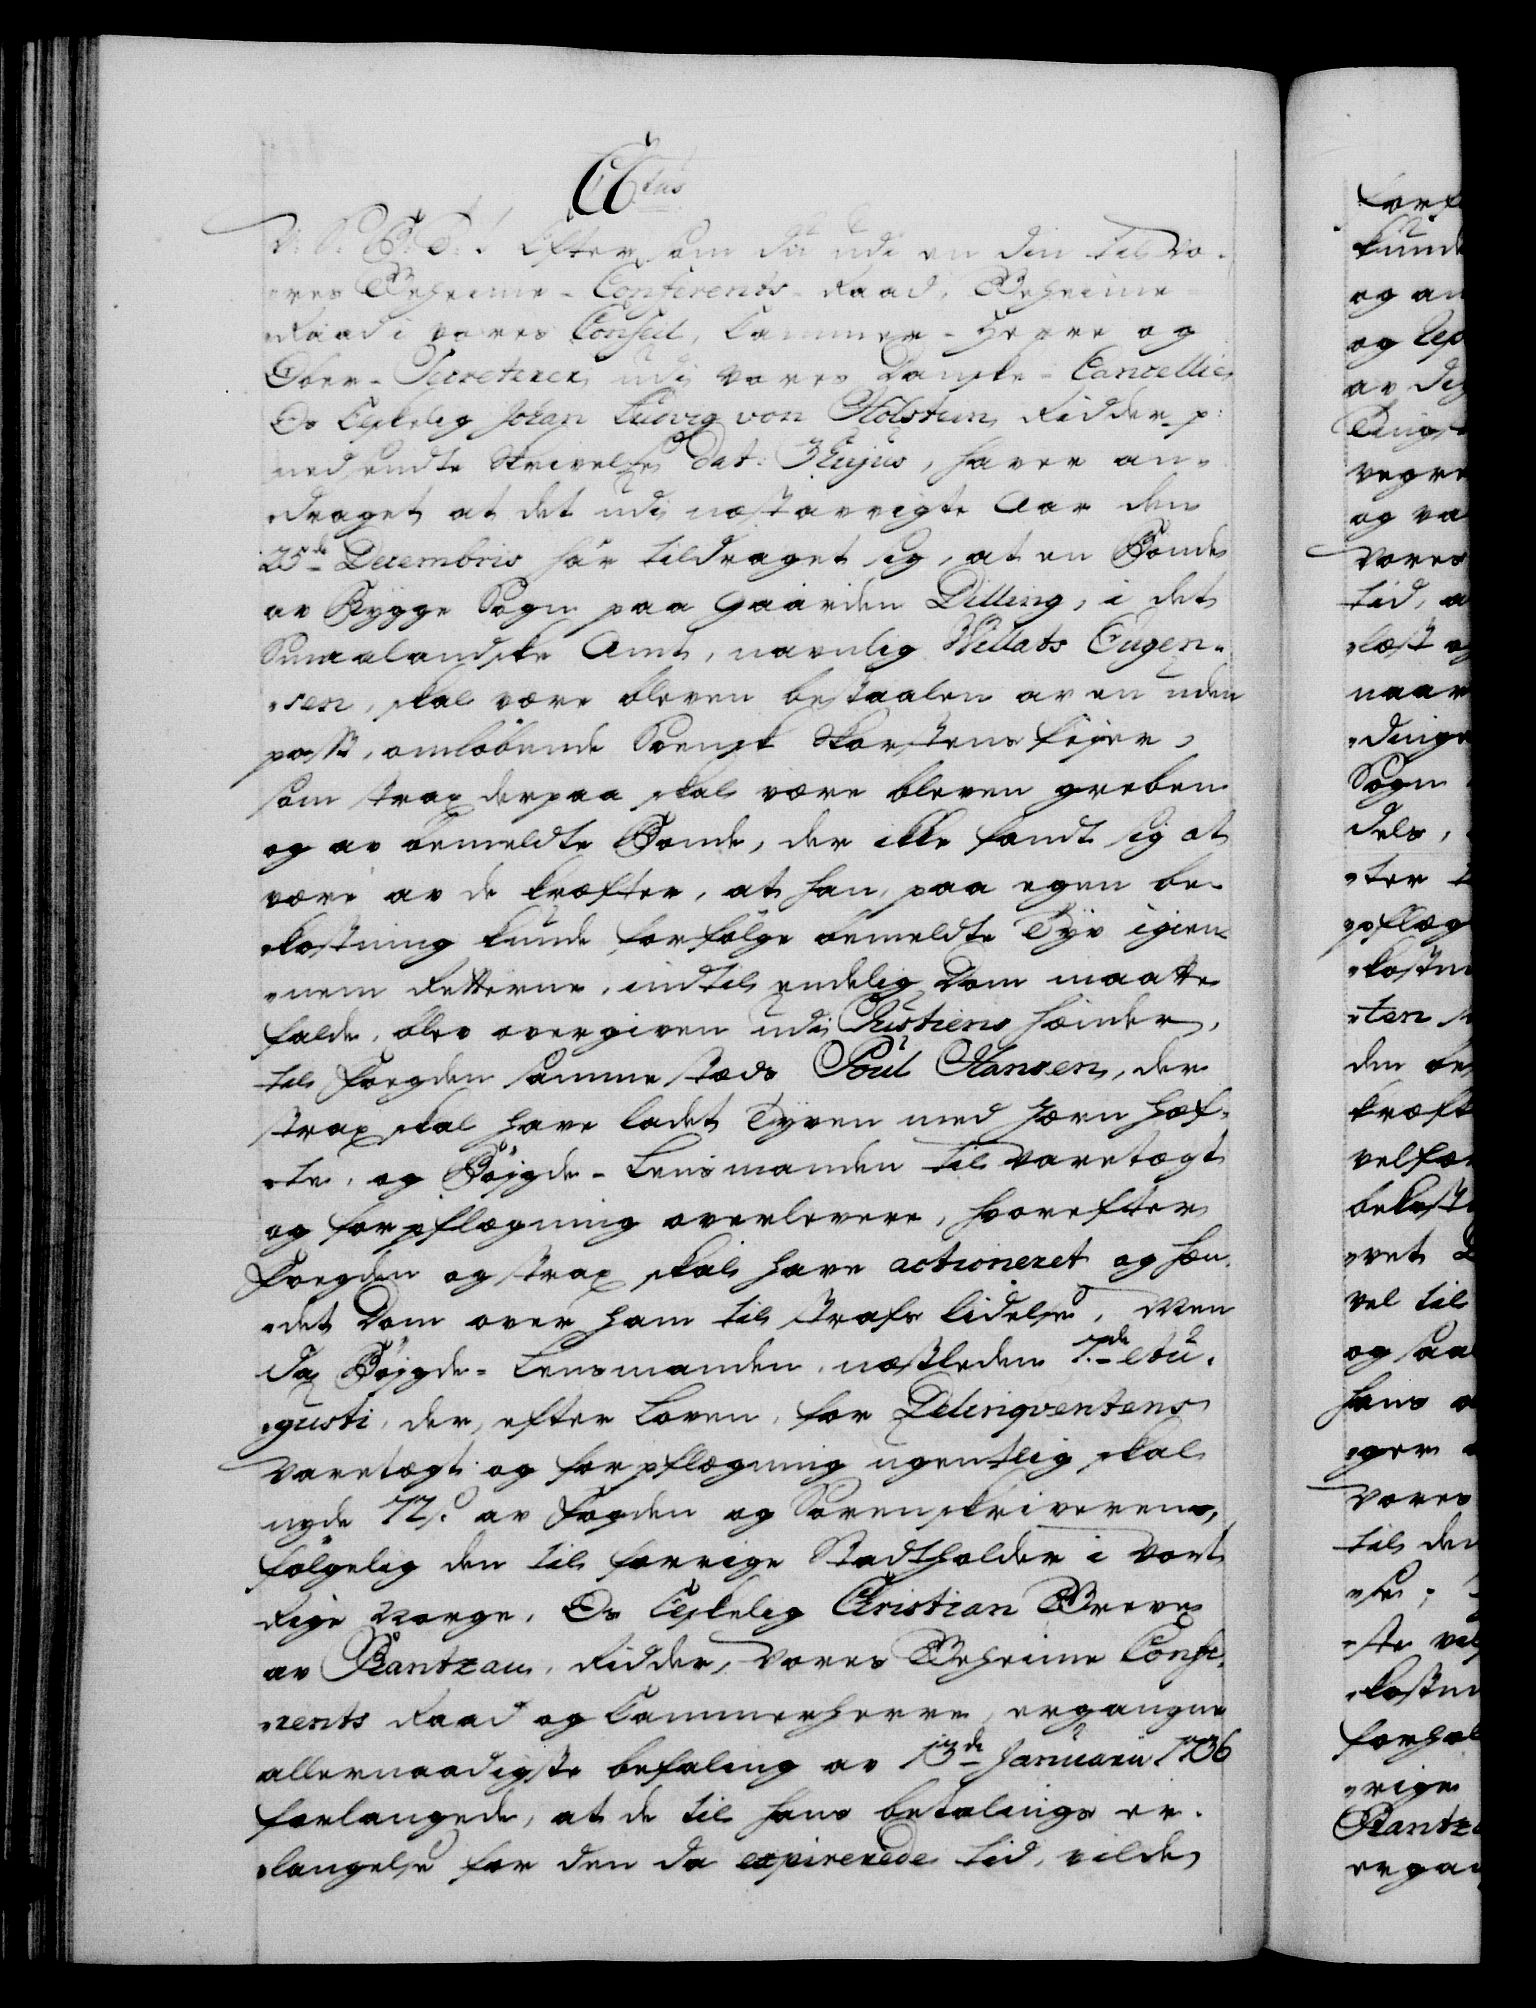 C6tus
V. S. G. T. Eftersom du udi en din til Vo-
res Geheime-Conferends-Raad, Geheime
Raad i vores Conseil, Cammer-Herre og
Ober-Secreterer udi vores Danske-Cancellie,
Os Elskelig Johan Ludvig von Holstein, Ridder p:
nedsendte Skrivelse dat: 3 Hujus, haver an-
draget at det udi næstavvigte Aar den
23de Decembris har tildraget sig, at en Bonde
av Rygge Sogn paa Gaarden Dilling, i det
Smaalandske Amt, navnlig Villats Eugen-
sen, skal være bleven bestaalen av en uden
pass, omløbende Svensk Skorstensfejer,
som strax derpaa skal være bleven greben
og av bemeldte Bonde, der ikke fandt sig at
være av de kræfter, at han paa egen be-
kostning kunde forfølge bemeldte Tyv igien-
nem Retterne, indtil endelig Dom maatte
falde, blev overgiven udi Justiens hænder,
til Fogden sammestæds Poul Hansen, der
strax skal have ladet Tyven med Jærn hæf-
te, og Bøjgde-Lensmanden til varetægt
og forpflægning overlevere, hvorefter
Fogden og strax skal have actioneret og hen-
det Dom over ham til Strafs lidelse, Men
da Bøjgde-Lensmanden, næstleden 7de Au-
gusti, der, efter Loven, for Delinqventens
varetægt og forpflægning ugentlig skal
nyde 72 s. av Fogden og Sorenskriveren,
følgelig den til forrige Stadtholder i Vort
Rige Norge, Os Elskelig Christian Greve
av Rantzau, Ridder, Vores Geheime Confe-
rents Raad og Cammerherre, ergangne
allernaadigste befaling av 13de Januarii 1736
forlangede, at de til hans betalings er-
langelse for den da expirerede tid, vilde